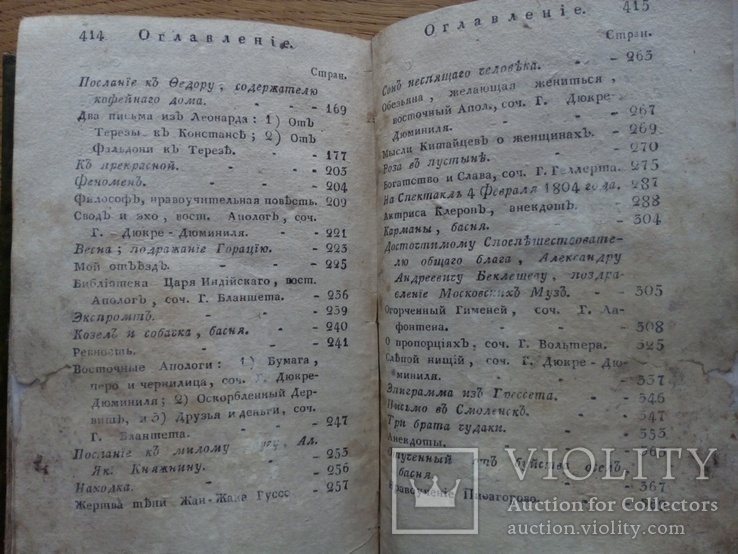 414 Оглавленіе.
Стран.
Посланіе къ Ѳедору, содержателю
кофейнаго дома. - - - 169
Два письма изъ Леонарда: 1) Отъ
Терезы къ Констансѣ; 2) Отъ
Фальдони къ Терезѣ. - - 177
Къ прекрасной. - - - 203
Феноменъ. - - - 204
Философъ, нравоучительная повѣсть. 209
Сводъ и эхо, вост. Апологъ, соч.
Г. Дюкре-Дюминиля. - - 221
Весна; подражаніе Горацію. - 223
Мой отъѣздъ. - - - 225
Библіотека Царя Индійскаго, вост.
Апологъ, соч. Г. Бланшета. - 236
Экспромтъ. - - - 239
Козелъ и собачка, басня. - 240
Ревность. - - - 241
Восточные Апологи: 1) Бумага,
перо и чернилица, соч. Г. Дюкре-
Дюминиля; 2) Оскорбленный Дер-
вишъ, и 3) Друзья и деньги, соч.
Г. Бланшета. - - - 247
Посланіе къ милому Ал.
Як. Княжнину. - - 256
Находка. - - - 257
Жертва тѣни Жан-Жаке
Оглавленіе. 415
Стран.
Сонъ неспящаго человѣка. - - 263
Обезьяна, желающая жениться,
восточный Апол., соч. Г. Дюкре-
Дюминиля. - - - 267
Мысли Китайцевъ о женщинахъ. 269
Роза въ пустынѣ. - - 270
Богатство и Слава, соч. Г. Геллерта. 275
На Спектакль 4 Февраля 1804 года. 287
Актриса Клеронъ, анекдотъ. - 288
Карманы, басня. - - 304
Достопочтимому Споспѣшествовате-
лю общего блага, Александру
Андреевичу Беклешеву, поздра-
вленіе Московскихъ Музъ. - 305
Огорченный Гименей, соч. Г. Ла-
фонтена. - - - 308
О пропорціяхъ, соч. Г. Вольтера. - 325
Слѣпой нищій, соч. Г. Дюкре-Дю-
миниля. - - - 337
Эпиграмма изъ Грессета. - 346
Письмо въ Смоленскъ. - - 347
Три брата чудаки. - - 353
Анекдоты. - -
отъ буйства
басня. - - 367
Нравоученіе Пиѳагорово. -
VIOLITY
Auction for Collectors
auction.violity.com